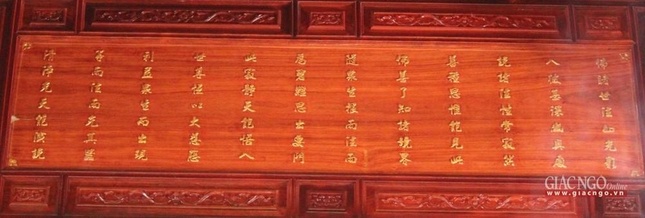 佛隨世法如光影
入彼甚深幽奧處
說諸法性常寂然
善種思惟能見此
佛善了知諸境界
隨眾生根雨法雨
為啟難思出要門
此寂靜天能悟入
世尊恒以大慈悲
利益眾生而出現
等雨法雨充其器
清淨光天能演說
GIACNGO Online
www.giacngo.vn